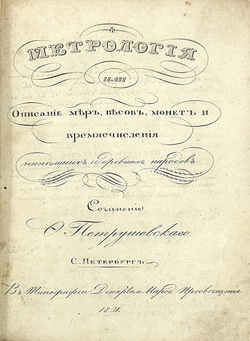 МЕТРОЛОГІЯ
ИЛИ
Описаніе мѣръ, вѣсовъ, монетъ и
времясчисленія
нынѣшнихъ и древнихъ народовъ.
Сочиненіе
Ѳ. Петрушевскаго
С. Петербургъ.
Въ Типографіи Департам. Народ. Просвѣщенія
1831.